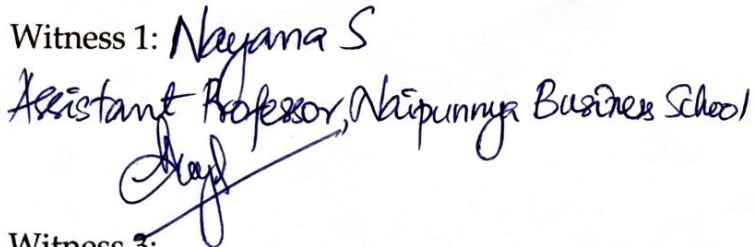 Witness 1: Nayana S
Assistant Professor, Naipunnya Business School
Witness 3: